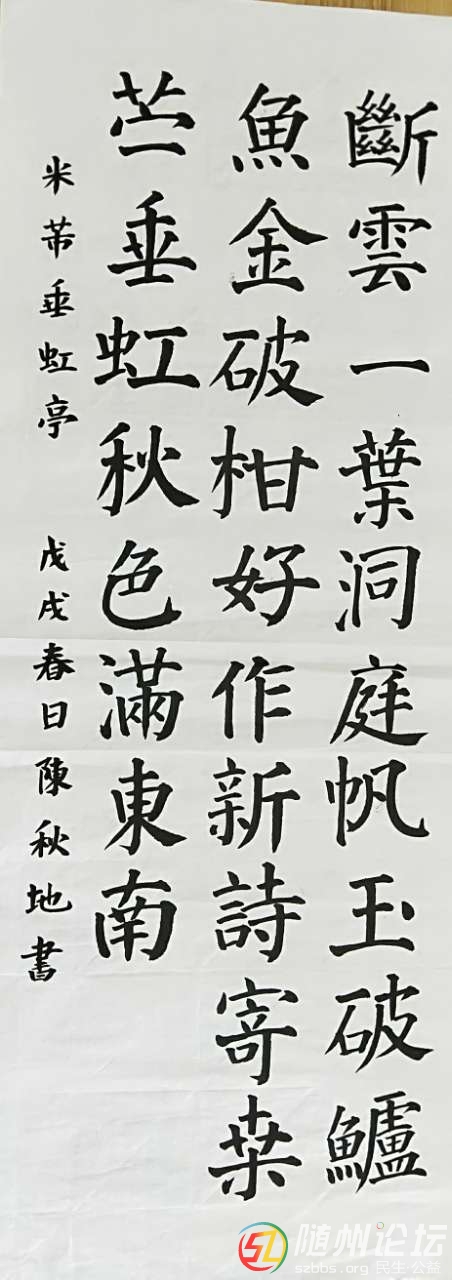 斷雲一葉洞庭帆玉破鱸
魚金破柑好作新詩寄桒
苎垂虹秋色滿東南
米芾垂虹亭 戊戌春日陳秋地書
随州论坛
szbbs.org 民生·公益